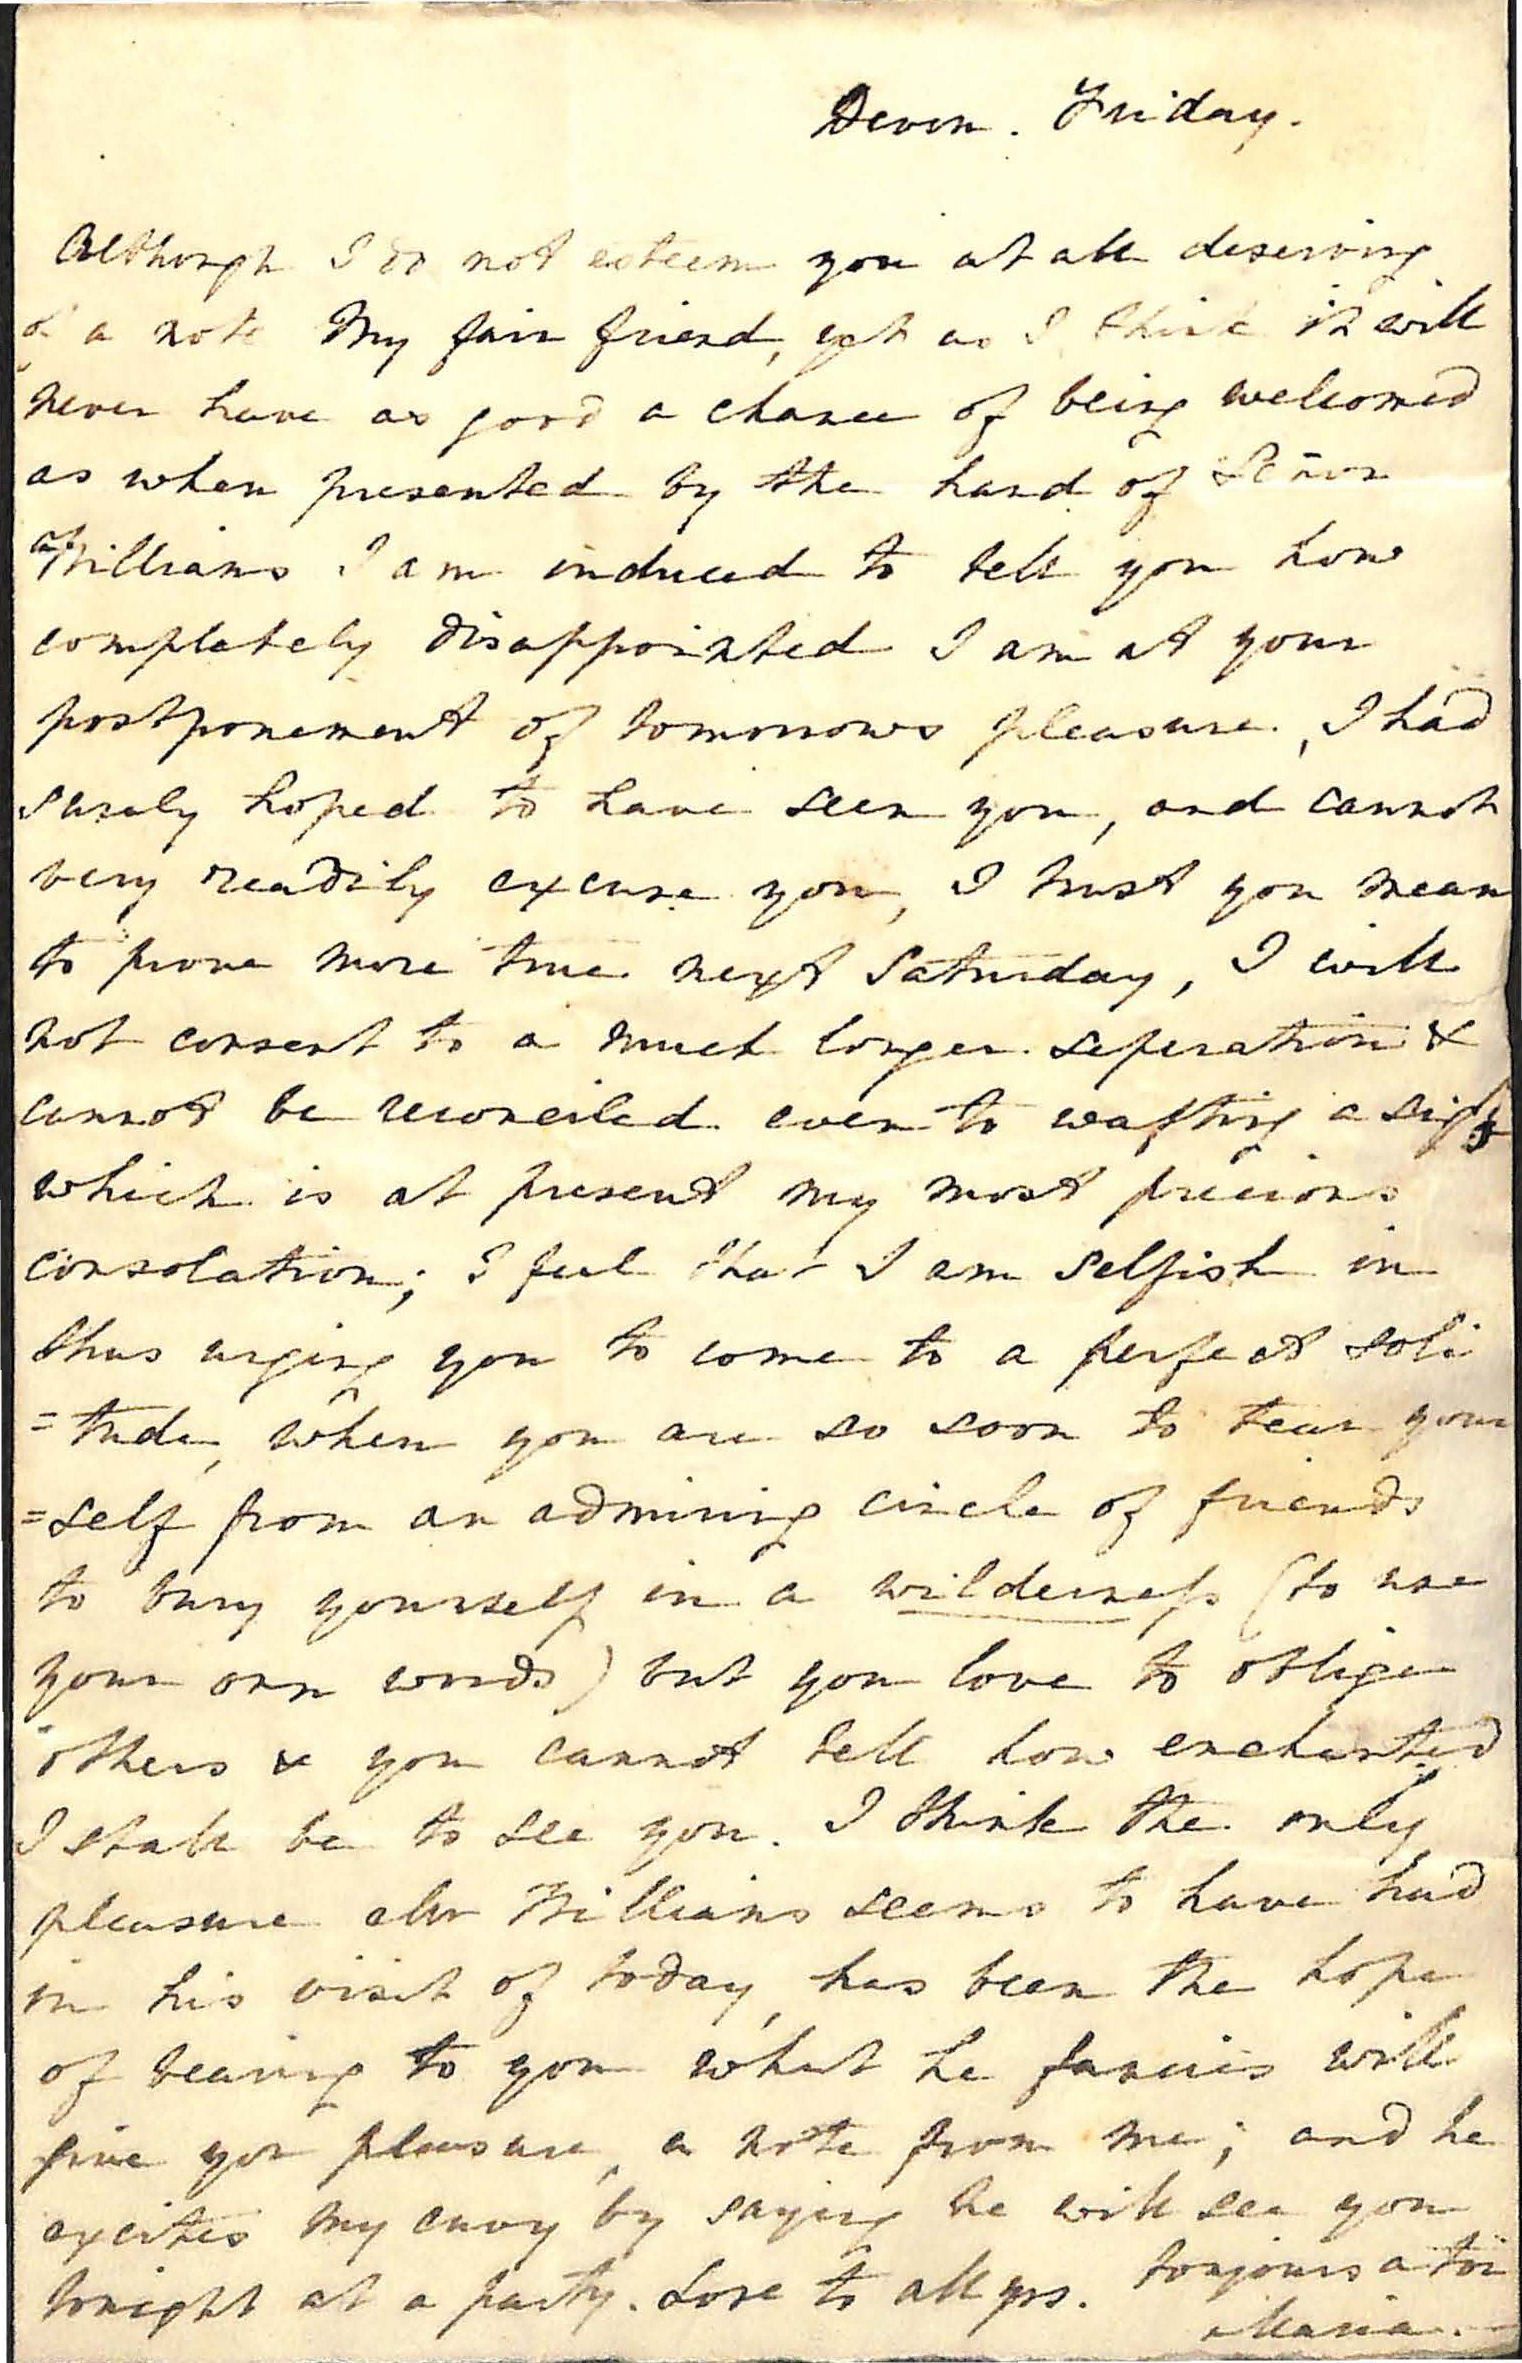 Devon. Friday.
Although I do not esteem you at all deserving
of a note My fair friend, yet as I think it will
never have as good a chance of being welcomed
as when presented by the hand of Señor
Williams I am induced to tell you how
completely disappointed I am at your
postponement of tomorrows pleasure, I had
surely hoped to have seen you, and cannot
very readily excuse you, I trust you mean
to prove more true next Saturday, I will
not consent to a much longer seperation &
cannot be reconciled even to wafting a sigh
which is at present my most precious
consolation; I feel that I am selfish in
thus urging you to come to a perfect soli
=tude, when you are so soon to tear your
=self from an admiring circle of friends
to bury yourself in a wilderness (to use
your own words) but you love to oblige
others & you cannot tell how enchanted
I shall be to see you. I think the only
pleasure Mr Williams seems to have had
in his visit of today, has been the hope
of bearing to you what he fancies will
give you pleasure, a note from me; and he
excites my envy by saying he will see you
tonight at a party. Love to all yrs. toujours a toi
Maria.